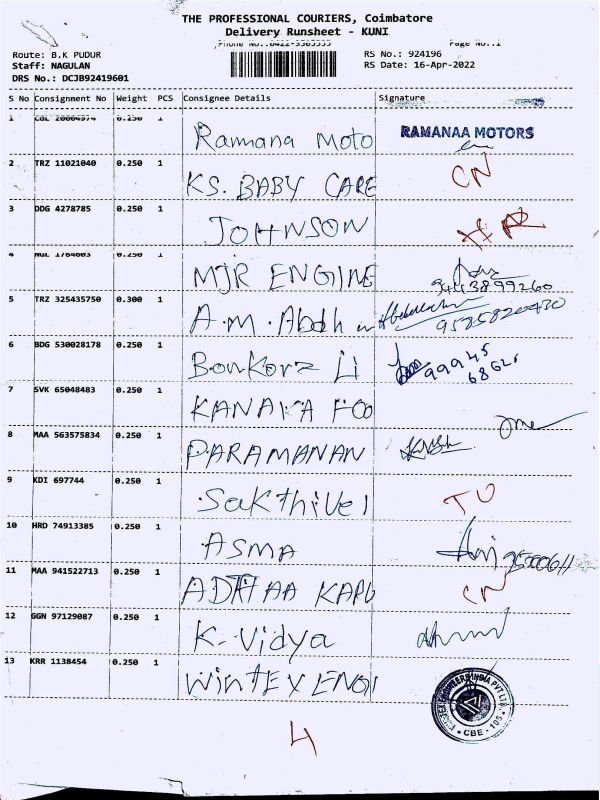 THE PROFESSIONAL COURIERS, Coimbatore
Delivery Runsheet - KUNI
Route: B.K PUDUR Page No.:1
Staff: NAGULAN RS No.: 924196
DRS No.: DCJB92419601 RS Date: 16-Apr-2022
S No Consignment No Weight PCS Consignee Details Signature
1 0.250 1 Ramana Moto RAMANAA MOTORS
2 TRZ 11021040 0.250 1 KS. BABY CARE CN
3 DDG 4278785 0.250 1 JOHNSON
4 0.250 1 MJR ENGINE
5 TRZ 325435750 0.300 1 A.M.Abdh
6 BDG 530028178 0.250 1 Bonkorz Li 99945
7 SVK 65048483 0.250 1 KANAKA FOO
8 MAA 563575834 0.250 1 PARAMANAN
9 KDI 697744 0.250 1 Sakthivel
10 HRD 74913385 0.250 1 ASMA
11 MAA 941522713 0.250 1 KAPU CN
12 GGN 97129087 0.250 1 K. Vidya
13 KRR 1138454 0.250 1 WintEX ENGI
INDIA PVT LTD
CBE - 105
4